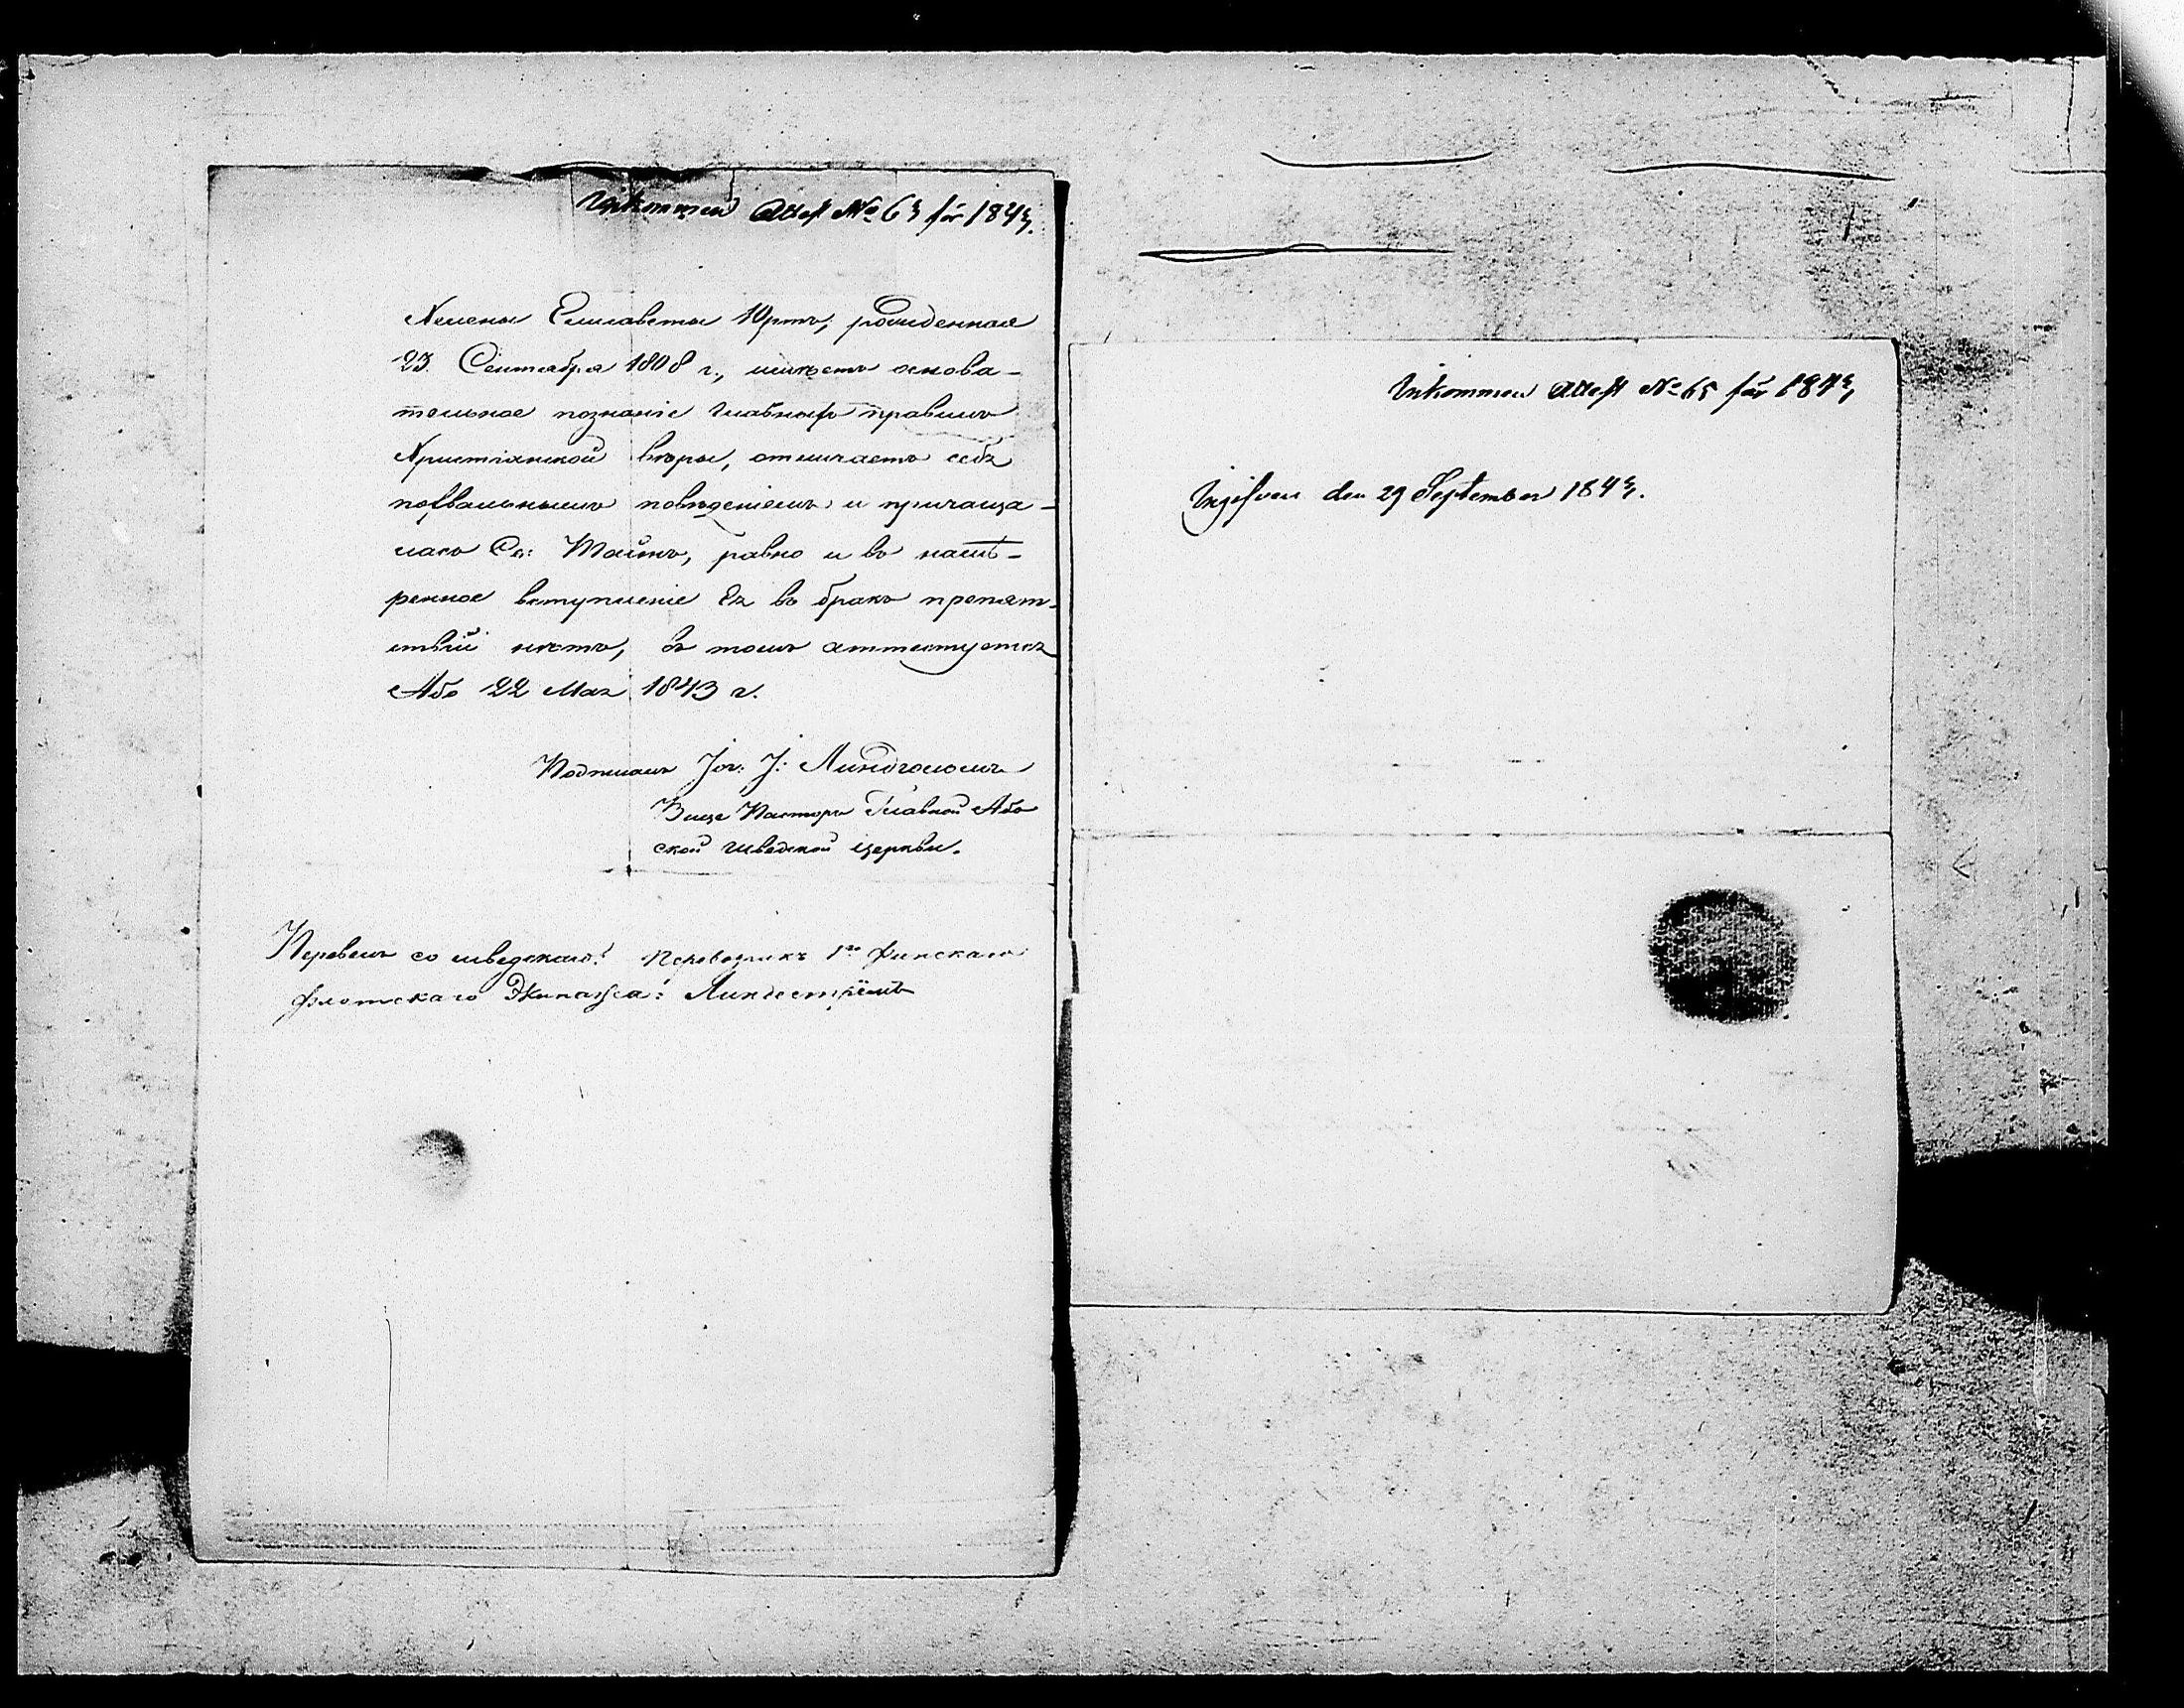 Inkommen Attest No 63 för 1843.
Хелены Елисаветы Юртъ, рожденная
23 Сентября 1808 г., имѣетъ основа-
тельное познаніе главныхъ правилъ
Христіанской вѣры, отличаетъ себя
похвальнымъ поведеніемъ и причаща-
лась Св: Таинъ, равно и въ намѣ-
ренное вступленіе Ея въ бракъ препят-
ствій нѣтъ, въ томъ аттестуется
Або 22 Мая 1843 г.
Подписалъ Joг: J:
Вице Пасторъ Главной Або
ской шведской церкви.
Перевелъ со шведскаго: Переводчикъ 1го Финскаго
Флотскаго Экипажа: Линдестрёмъ
Inkommen Attest No 65 för 1843,
Ingifven den 29 September 1843.